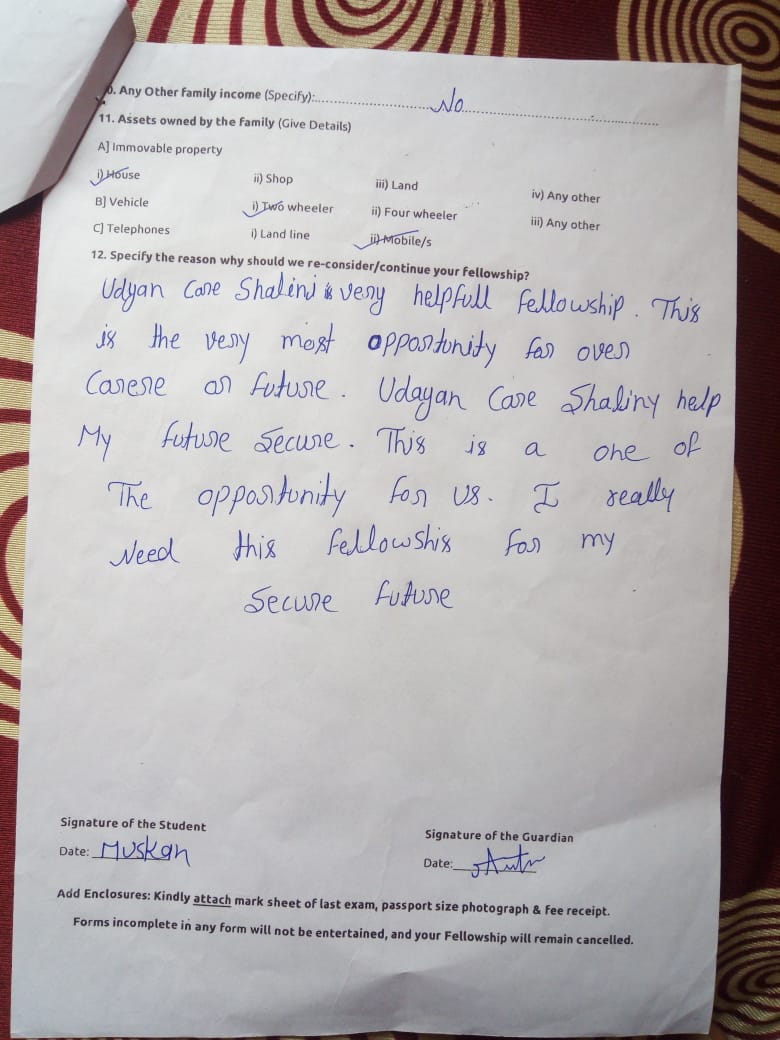 0. Any Other family income (Specify):........No........
11. Assets owned by the family (Give Details)
A] Immovable property
i) House ii) Shop iii) Land iv) Any other
B] Vehicle i) Two wheeler ii) Four wheeler iii) Any other
C] Telephones i) Land line ii) Mobile/s
12. Specify the reason why should we re-consider/continue your fellowship?
Udyan Care Shalini is very helpfull fellowship. This
is the very most opportunity for over
Carere or future. Udayan Care Shaliny help
My future secure. This is a one of
The opportunity for us. I really
Need this fellowshis for my
Secure future
Signature of the Student
Signature of the Guardian
Date: Muskan
Date:
Add Enclosures: Kindly attach mark sheet of last exam, passport size photograph & fee receipt.
Forms incomplete in any form will not be entertained, and your Fellowship will remain cancelled.